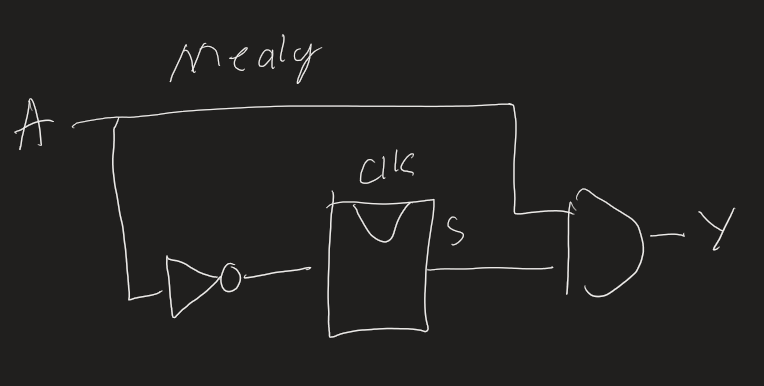 Mealy
A
Clk
S
Y